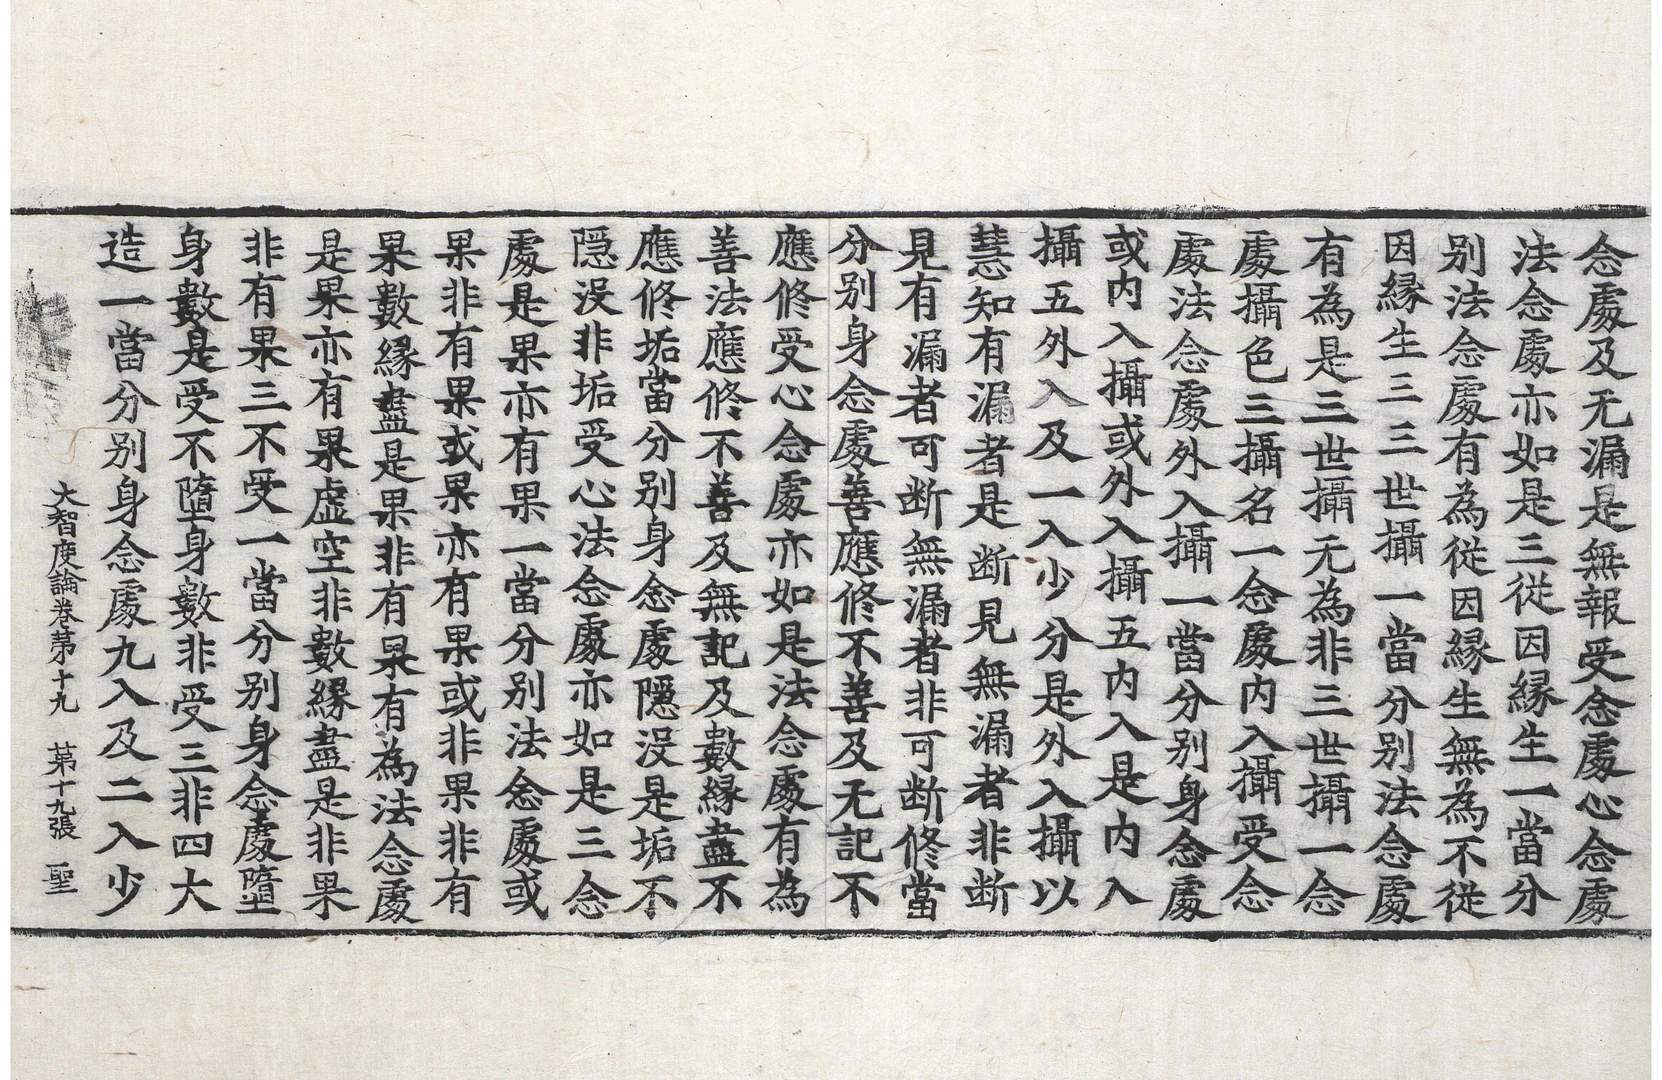 念處及无漏是無報受念處心念處
法念處亦如是三從因縁生一當分
别法念處有為從因縁生無為不從
因縁生三三世攝一當分别法念處
有為是三世攝无為非三世攝一念
處攝色三攝名一念處内入攝受念
處法念處外入攝一當分别身念處
或内入攝或外入攝五内入是内入
攝五外入及一入少分是外入攝以
慧知有漏者是断見無漏者非断
見有漏者可断無漏者非可断修當
分别身念處善應修不善及无記不
應修受心念處亦如是法念處有為
善法應修不善及無記及數縁盡不
應修垢當分别身念處隠没是垢不
隠没非垢受心法念處亦如是三念
處是果亦有果一當分别法念處或
果非有果或果亦有果或非果非有
果數縁盡是果非有果有為法念處
是果亦有果虚空非數縁盡是非果
非有果三不受一當分别身念處墮
身數是受不墮身數非受三非四大
造一當分别身念處九入及二入少
大智度論卷第十九 第十九張 聖